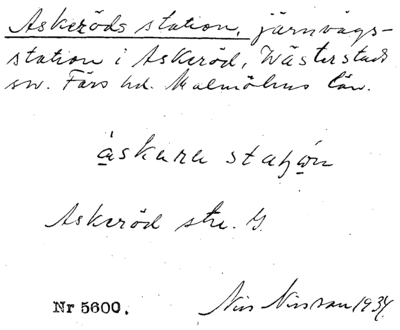 Askeröds station, järnvägs-
station i Askeröd, Wästerstads
sn. Färs hd. Malmöhus län.
Askeröd stn. G.
Nr 5600. Nils Nilsson 1934.